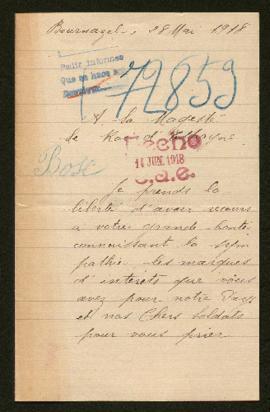 Bournazel, 28 Mai 1918
Pedir informes
Que se hace a
72859
A sa Magesté
le Roi d'Espagne
Fecho
14 JUN. 1918
C.a.e.
Bosc
Je prends la
liberté d'avoir recours
a votre grande bonté
connaissant la sym
pathie les marques
d'intérêts que vous
avez pour notre Pays
et nos Chers Soldats
pour vous prier